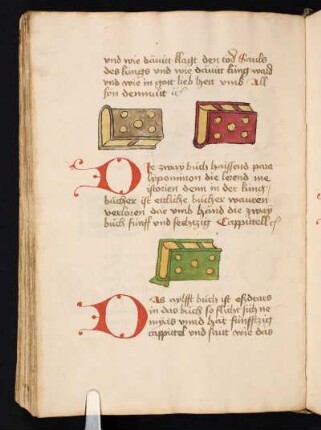 vnd wie dauit klagt den tod Sauls
des kungs vnd wie dauit kung ward
vnd wie in gott lieb hett vmb all
sin demutt
Die zway buch haissend para
lyppomnon die lerend me
istorien denn in der kung
bücher ist ettliche bücher wauren
verloren dar vmb hand die zway
buch funff vnd sechtzig Cappittell
Das aylfft buch ist esdras
in das buch so flicht sich ne
myas vnnd hat funfftzig
cappittel vnd sait wie das